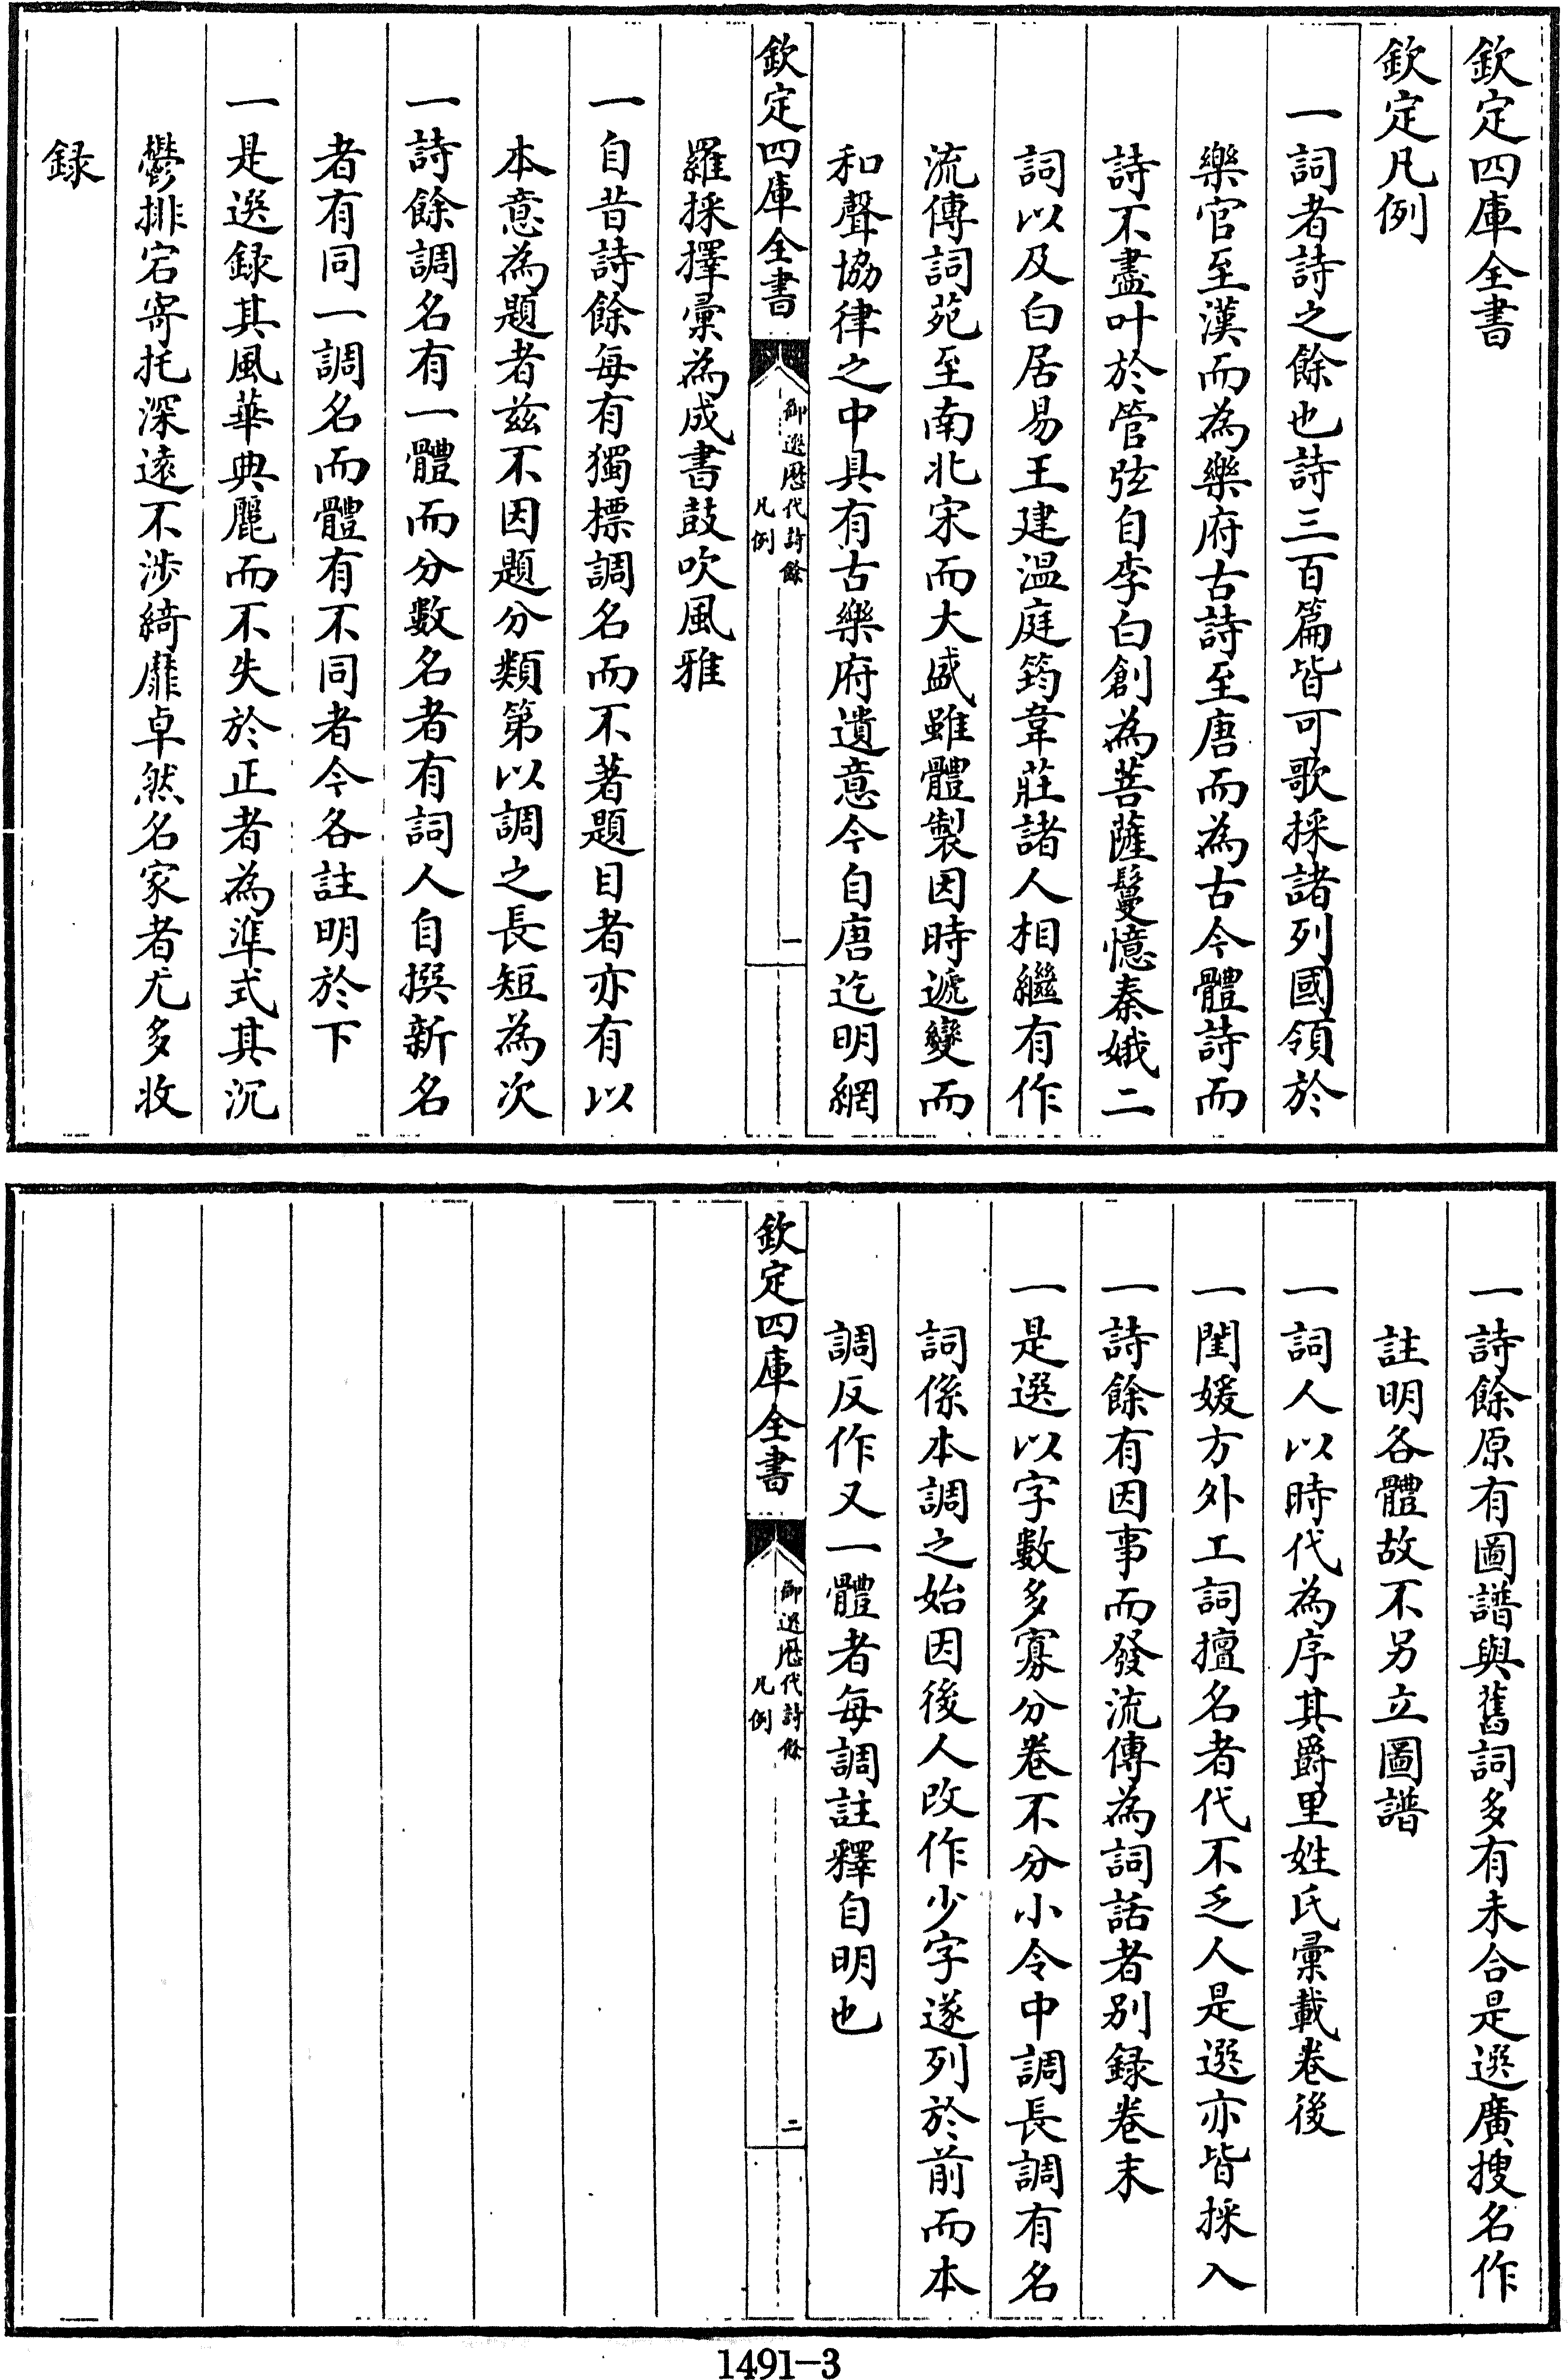 欽定四庫全書
欽定凡例
一詞者詩之餘也詩三百篇皆可歌採諸列國領於
樂官至漢而為樂府古詩至唐而為古今體詩而
詩不盡叶於管弦自李白創為菩薩鬘憶秦娥二
詞以及白居易王建溫庭筠韋莊諸人相繼有作
流傳詞苑至南北宋而大盛雖體製因時遞變而
和聲協律之中具有古樂府遺意今自唐迄明網
欽定四庫全書
御選歷代詩餘
凡例
一
羅採擇彙為成書鼓吹風雅
一自昔詩餘每有獨標調名而不著題目者亦有以
本意為題者茲不因題分類第以調之長短為次
一詩餘調名有一體而分數名者有詞人自撰新名
者有同一調名而體有不同者今各註明於下
一是選録其風華典麗而不失於正者為準式其沉
鬱排宕寄托深遠不涉綺靡卓然名家者尤多收
録
一詩餘原有圖譜與舊詞多有未合是選廣搜名作
註明各體故不另立圖譜
一詞人以時代為序其爵里姓氏彙載卷後
一閨媛方外工詞擅名者代不乏人是選亦皆採入
一詩餘有因事而發流傳為詞話者别録卷末
一是選以字數多寡分卷不分小令中調長調有名
詞係本調之始因後人改作少字遂列於前而本
調反作又一體者每調註釋自明也
欽定四庫全書
御選歷代詩餘
凡例
二
1491-3